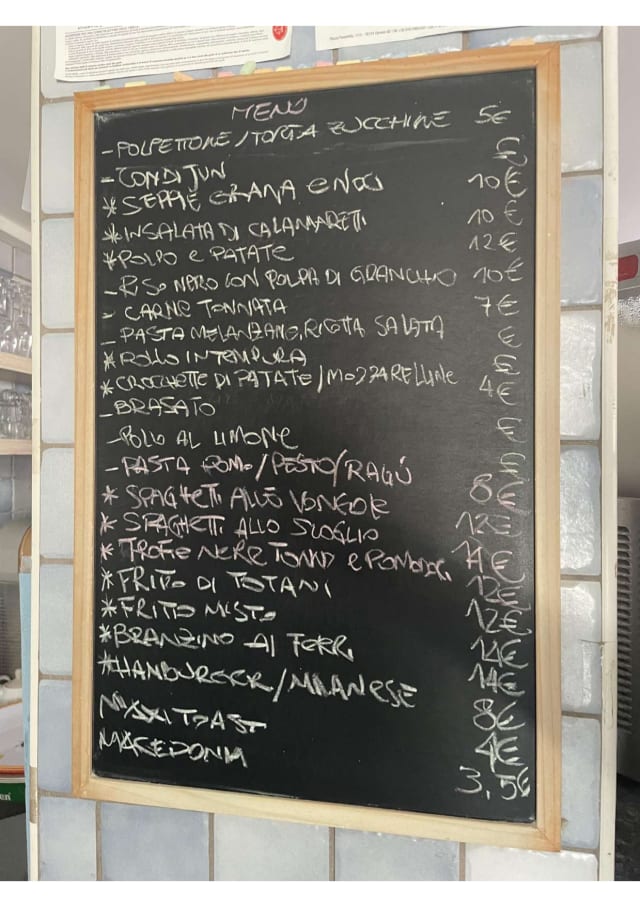 MENÙ
- POLPETTONE / TORTA ZUCCHINE 5€
- CONDIJUN €
* SEPPIE GRANA e NOCI 10€
* INSALATA DI CALAMARETTI 10€
* POLPO e PATATE 12€
- RISO NERO CON POLPA DI GRANCHIO 10€
- CARNE TONNATA 7€
- PASTA MELANZANE, RICOTTA SALATA €
* POLLO IN TEMPURA €
* CROCCHETTE DI PATATE / MOZZARELLINE 4€
- BRASATO
- POLLO AL LIMONE €
- PASTA POMO / PESTO / RAGÙ 8€
* SPAGHETTI ALLE VONGOLE 12€
* SPAGHETTI ALLO SCOGLIO
* TROFIE NERE TONNO e POMODO. 12€
* FRITTO DI TOTANI 12€
* FRITTO MISTO 14€
* BRANZINO AI FERRI 14€
* HAMBURGER / MILANESE 8€
MAXI TOAST 4€
MACEDONIA 3,5€